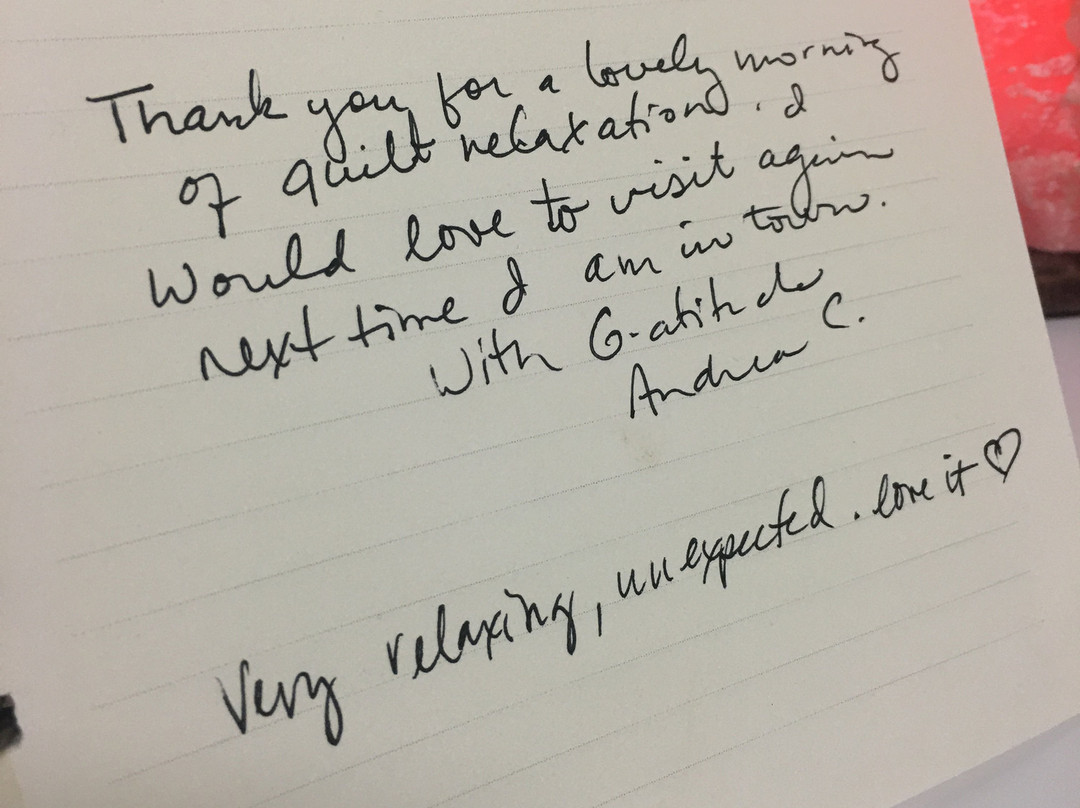 Thank you for a lovely morning
of quilt relaxation. I
would love to visit again
next time I am in town.
With Gratitude
Andrea C.
Very relaxing, unexpected. love it ♡